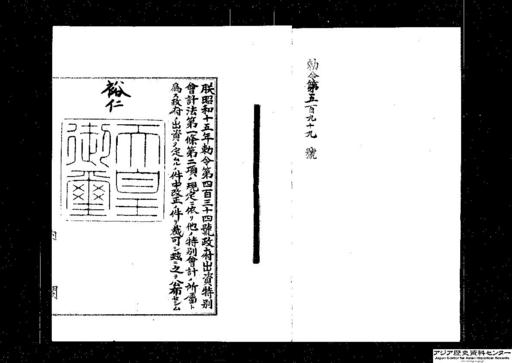 勅令第五百九十九號
朕昭和十五年勅令第四百三十四號政府出資特別
會計法第一條第二項ノ規定ニ依リ他ノ特別會計ノ所屬ト
爲ス政府ノ出資ノ定ムルノ件中改正ノ件ヲ裁可シ茲ニ之ヲ公布セシム
裕仁
天皇御璽
内閣
アジア歴史資料センター
Japan Center for Asian Historical Records